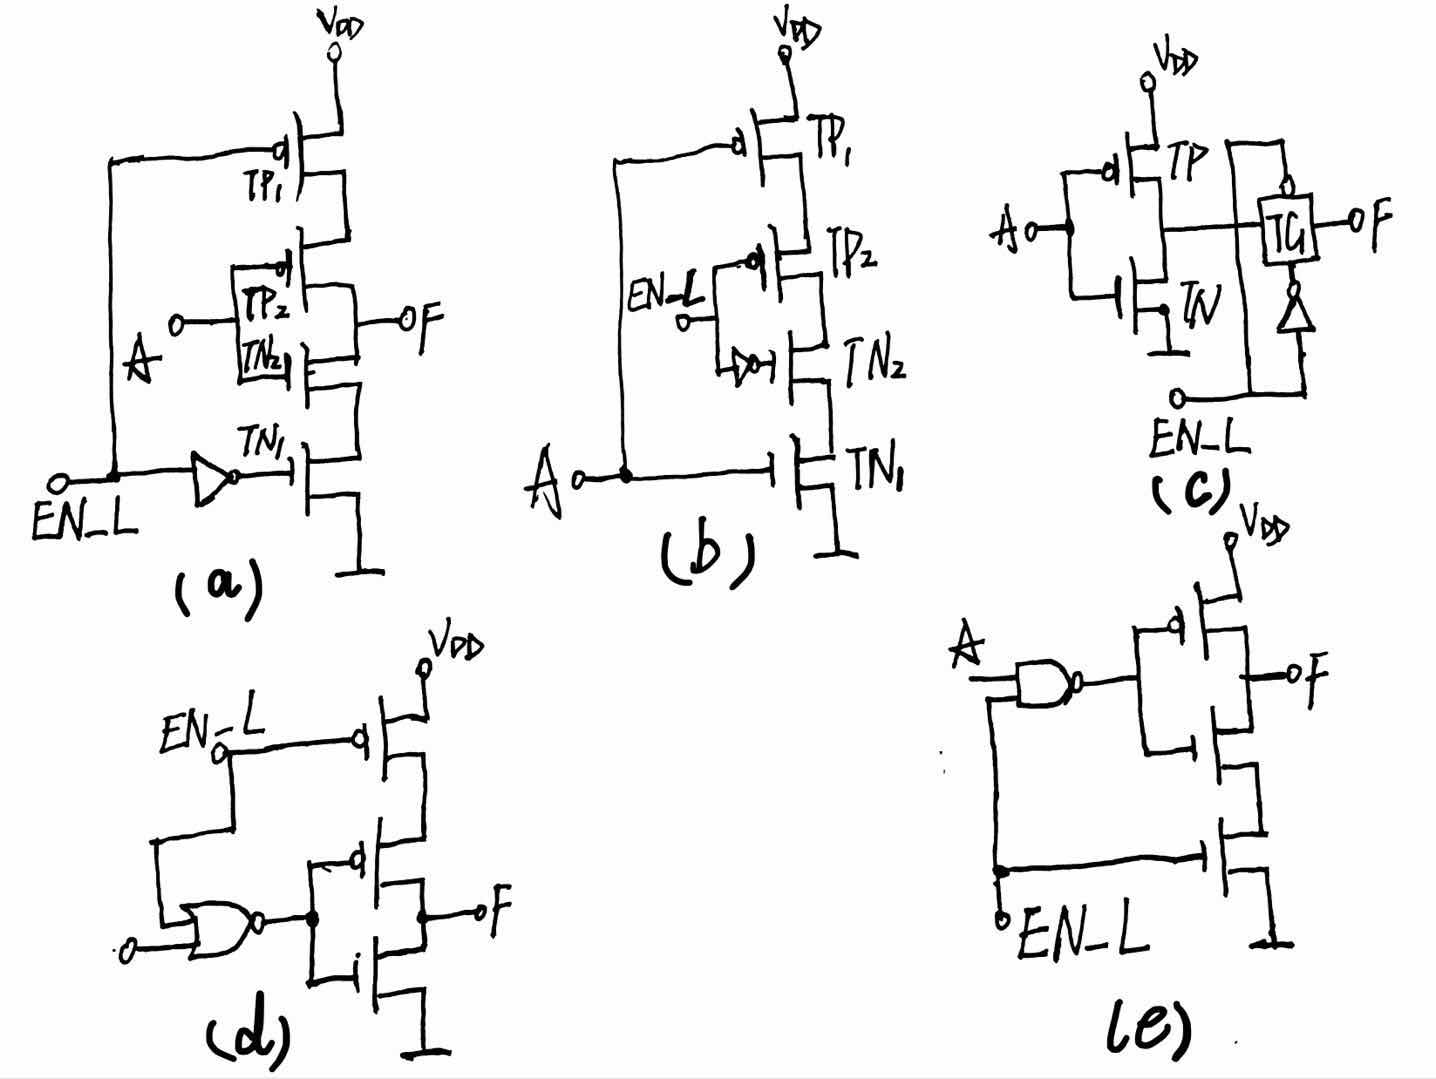 VDD
TP1
TP2
A
F
TN2
TN1
EN_L
(a)
VDD
TP1
TP2
EN_L
TN2
A
TN1
(b)
VDD
TP
A
TG
F
TN
EN_L
(c)
VDD
EN_L
F
(d)
VDD
A
F
EN_L
(e)